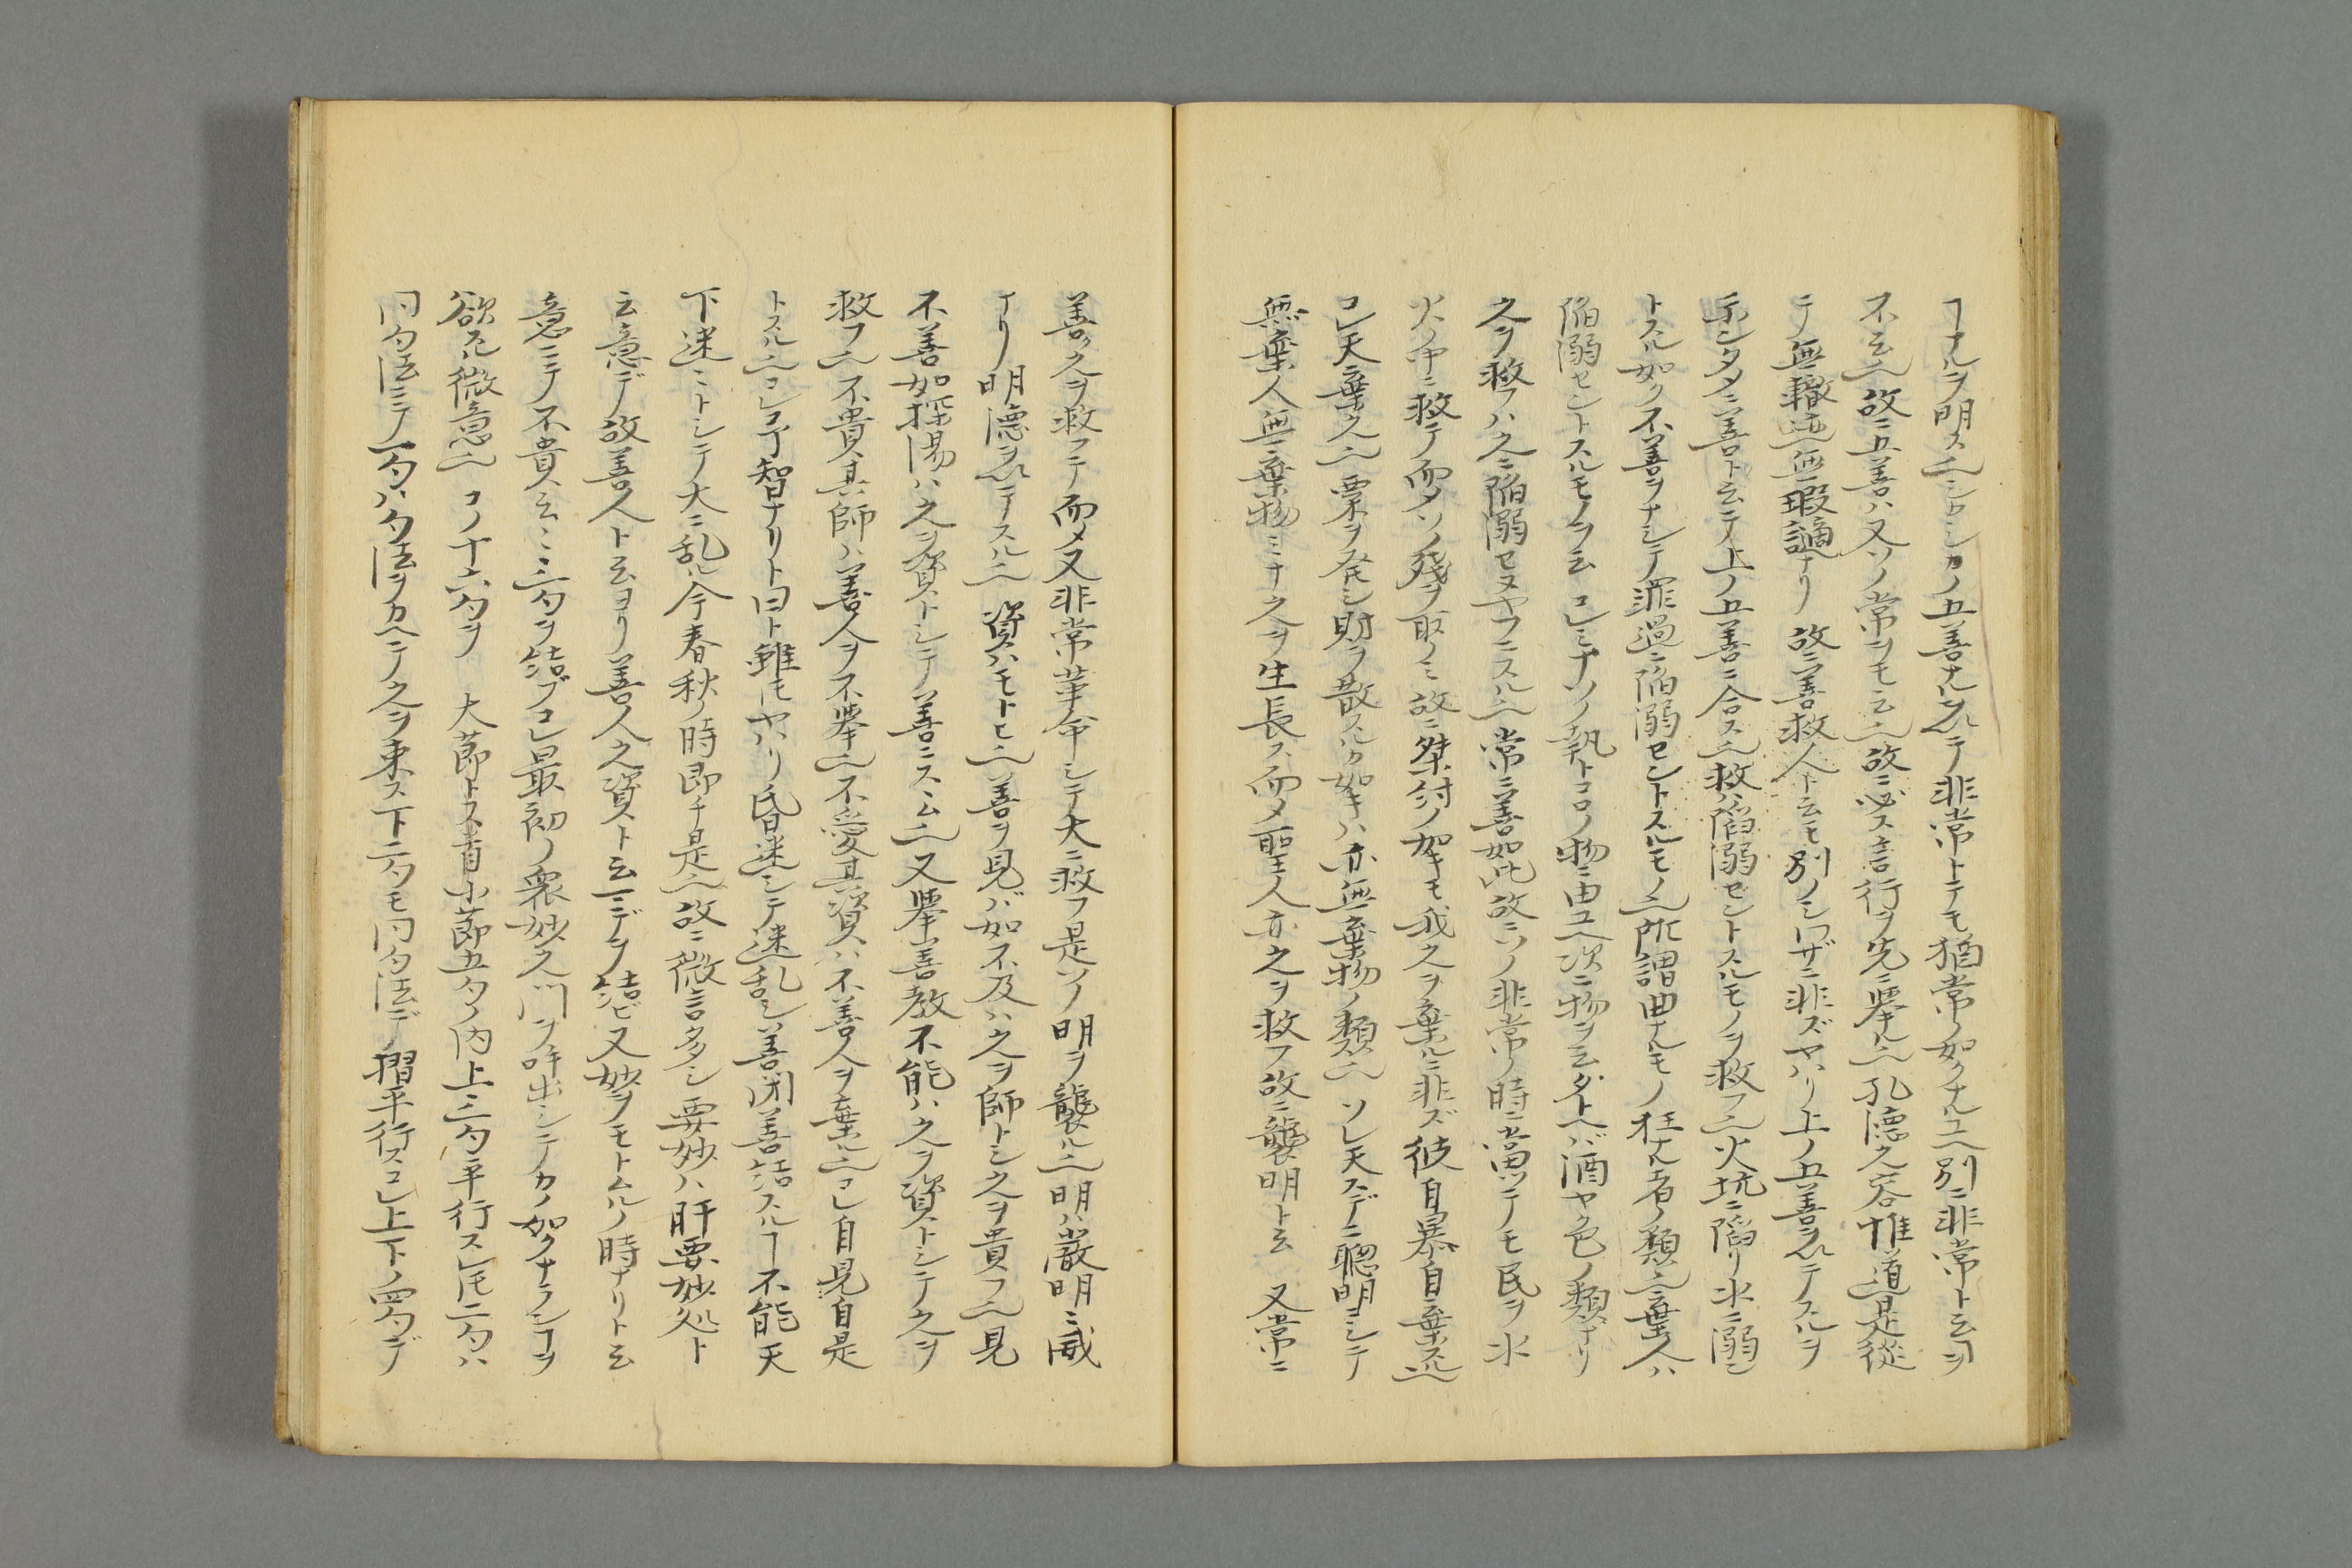 ヿアルヲ明ス也シロシカノ五善ナル𪜈テ非常トテモ猶常ノ如クナルユヘ別ニ非常ト云ヿヲ
不云也故ニ五善ハ又ソノ常ヲモ云也故ニ必ス言行ヲ先ニ挙ル也孔徳之容惟道是從
テ無轍迹無瑕讁ナリ 故ニ善救人ト云モ別ノシワザニ非ズヤハリ上ノ五善ヲ以テスルヲ
テンタタニ善ト云テ上ノ五善ニ合ス也救ハ陥溺セントスルモノヲ救フ也火坑ニ陥リ水ニ溺ン
トスル如ク不善ヲナシテ罪過ニ陥溺セントスルモノ也所謂曲ナルモノ枉ナル者ノ類也棄人ハ
陥溺セントスルモノヲ云コレミナソノ執トコロノ物ニ由ユヘ次ニ物ヲ云タトヘバ酒ヤ色ノ類ナリ
之ヲ救フハ之ニ陥溺セヌヤフニスル也常ニ善如此故ニソノ非常ノ時ニ當ツテモ民ヲ水
火ノ中ニ救テ而メソノ残ヲ取ノミ故ニ桀紂ノ如キモ我之ヲ棄ルニ非ズ彼自暴自棄ス
コレ天ニ棄之也粟ヲ発シ財ヲ散スルカ如キハ亦無棄物ノ類也 ソレ天スデニ聰明ヨシテ
無棄人無棄物ミナ之ヲ生長ス而メ聖人亦之ヲ救フ故ニ襲明ト云 又常ニ
善ク之ヲ救フテ而メ又非常革命シテ大ニ救フ是ソノ明ヲ襲ル也明ハ嚴明ニ威
アリ明徳ヲ以テスル也 資ハモト也善ヲ見バ如不及ハ之ヲ師トシ之ヲ貴フ也見
不善如探湯ハ之ヲ資トシテ善ニスヽム也又挙善教不能ハ之ヲ資トシテ之ヲ
救フ也不貴其師ハ善人ヲ不挙也不愛其資ハ不善人ヲ棄ル也コレ自見自是
トスル也コレ予智ナリト曰ト雖モヤハリ昏迷シテ迷乱シ善閉善結スルヿ不能天
下迷ミトシテ大ニ乱ル今春秋ノ時即チ是也故ニ微言多シ要妙ハ肝要妙処ト
云意デ故善人ト云ヨリ善人之資ト云マデヲ結ビ又妙ヲモトムルノ時ナリト云
意ニテ不貴云ミ三句ヲ結ブコレ最初ノ衆妙之門ヲ呼出シテカノ如クナランヿヲ
欲スル微意也 コノ十六句ヲ 大節トス首小節五句ノ内上三句平行スレ𪜈二句ハ
同句法ニテ一句ハ句法ヲカヘテ之ヲ束ス下二句モ同句法デ摺平行スコレ上下ノ四句デ